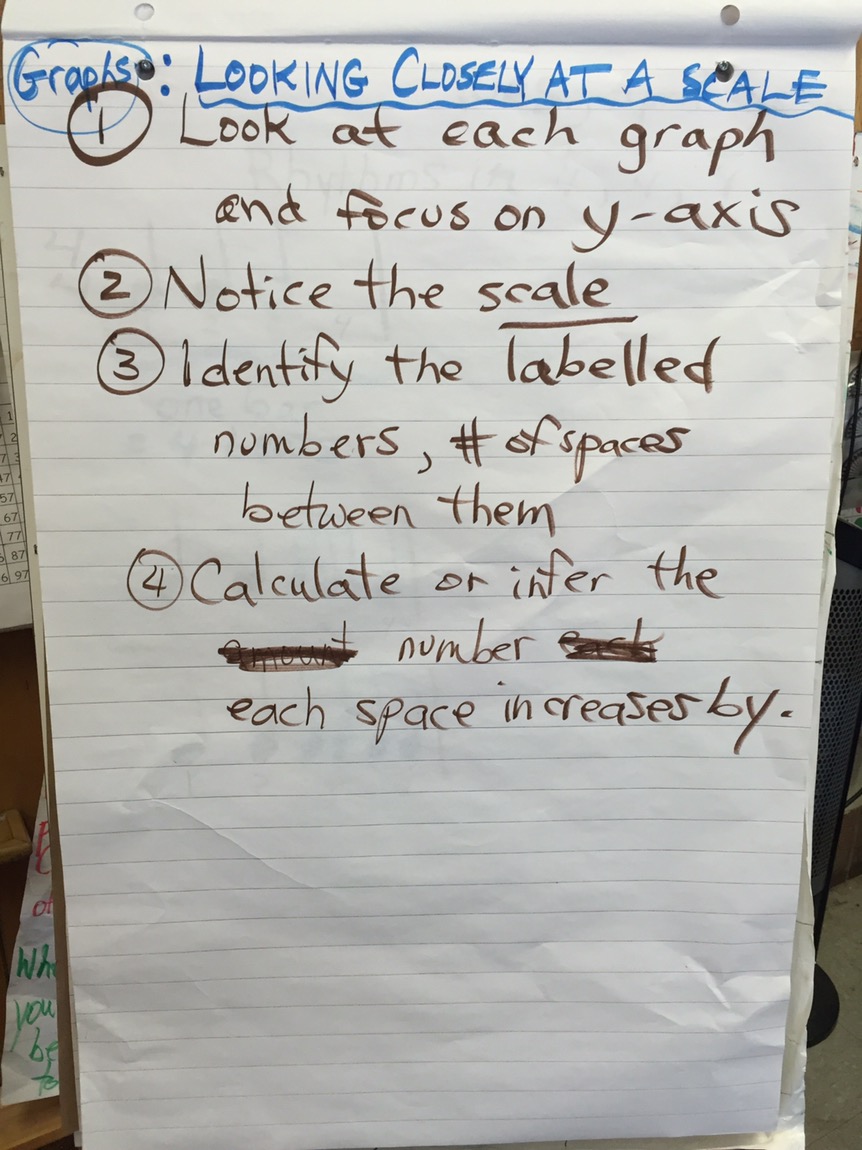 Graphs: LOOKING CLOSELY AT A SCALE
1 Look at each graph
and focus on y-axis
2 Notice the scale
3 Identify the labelled
numbers, # of spaces
between them
4 Calculate or infer the
amount number each
each space increases by.
1
2
7 3
47
57
67
77
87
6 97
of
you
be
to